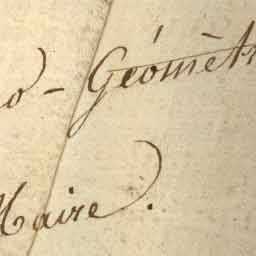 o - Géomèt
Maire.